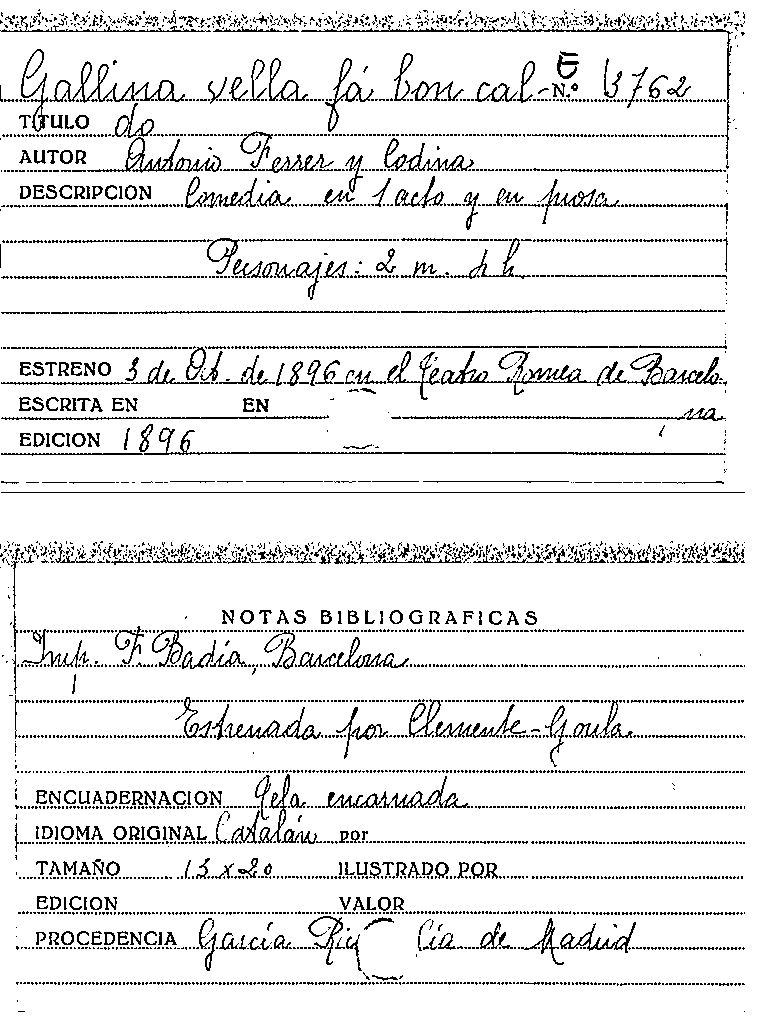 Gallina vella fá bon cal- N.º 13762
TITULO do
AUTOR Antonio Ferrer y Codina
DESCRIPCION Comedia en 1 acto y en prosa
Personajes: 2 m. 4 h.
ESTRENO 3 de Oct. de 1896 en el Teatro Romea de Barcelo-
ESCRITA EN EN na
EDICION 1896
NOTAS BIBLIOGRAFICAS
Imp. F. Badía, Barcelona
Estrenada por Clemente-Goula.
ENCUADERNACION Tela encarnada
IDIOMA ORIGINAL Catalán por
TAMAÑO 13 x 20 ILUSTRADO POR
EDICION VALOR
PROCEDENCIA García Rico Cía de Madrid